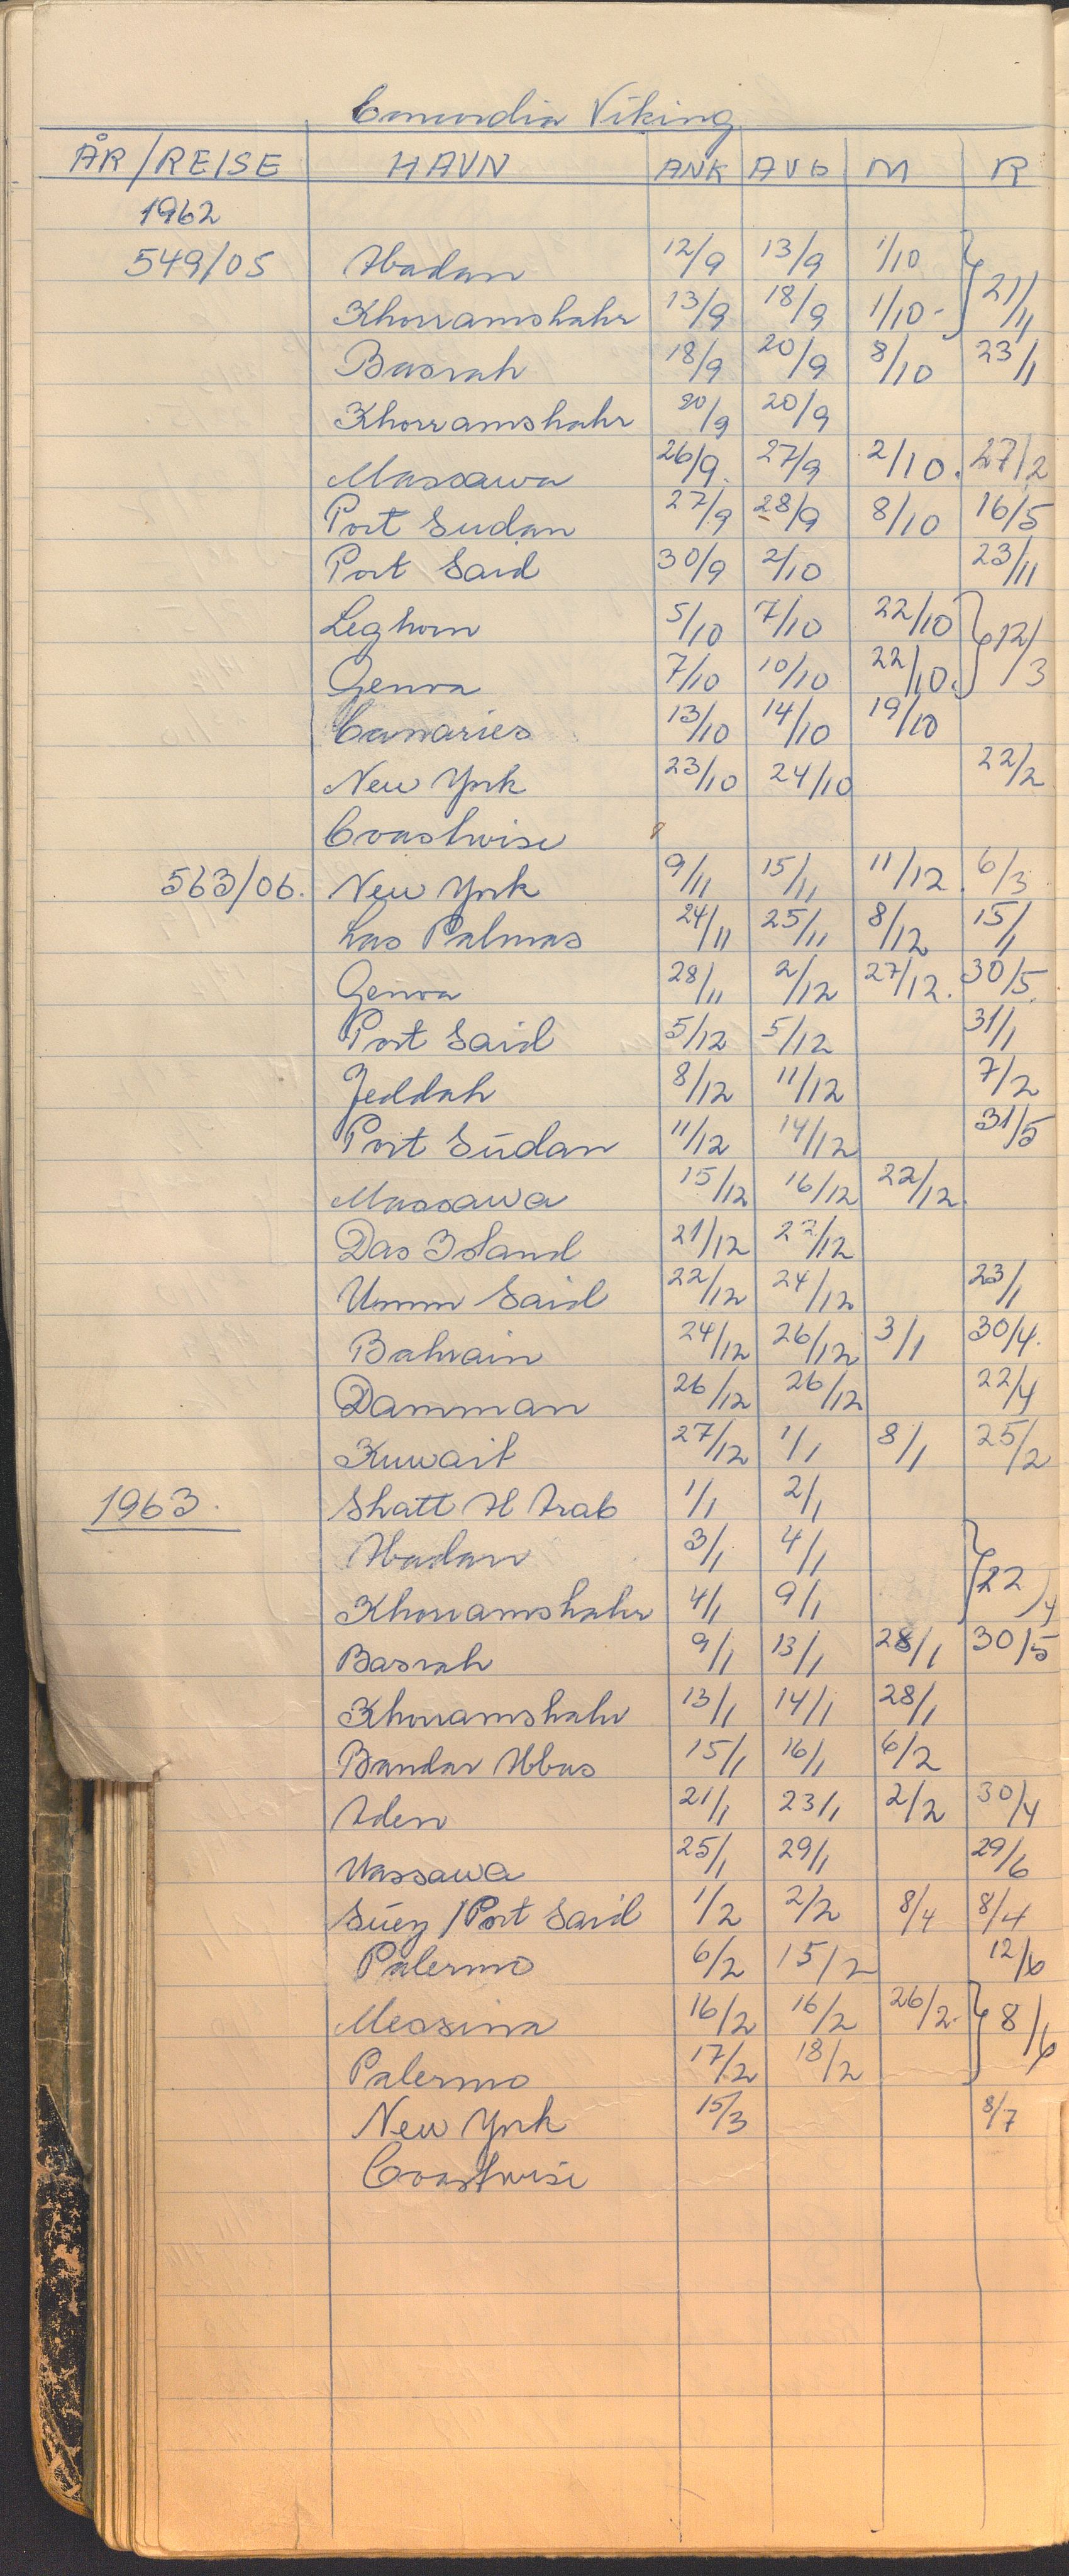 Concordia Viking
ÅR/REISE HAVN ANK AVG M R
1962
549/05 Abadan 12/9 13/9 1/10
Khorramshahr 13/9 18/9 1/10- } 21/11
Basrah 18/9 20/9 8/10 23/1
Khorramshahr 20/9 20/9
Massawa 26/9 27/9 2/10. 27/2
Port Sudan 27/9 28/9 8/10 16/5
Port Said 30/9 2/10 23/11
Leghorn 5/10 7/10 22/10 } 12/3
Genoa 7/10 10/10 22/10.
Canaries 13/10 14/10 19/10
New York 23/10 24/10 22/2
Coastwise
563/06. New York 9/11 15/11 11/12. 6/3
Las Palmas 24/11 25/11 8/12 15/1
Genoa 28/11 2/12 27/12. 30/5.
Port Said 5/12 5/12 31/1
Jeddah 8/12 11/12 7/2
Port Sudan 11/12 14/12 31/5
Massawa 15/12 16/12 22/12.
Das Island 21/12 22/12
Umm Said 22/12 24/12 23/1
Bahrain 24/12 26/12 3/1 30/4.
Damman 26/12 26/12 22/4
Kuwait 27/12 1/1 8/1 25/2
1963. Shatt Al Arab 1/1 2/1
Abadan 3/1 4/1 } 22/4
Khorramshahr 4/1 9/1
Basrah 9/1 13/1 28/1 30/5
Khorramshahr 13/1 14/1 28/1
Bandar Abbas 15/1 16/1 6/2
Aden 21/1 23/1 2/2 30/4
Massawa 25/1 29/1 29/6
Suez/Port Said 1/2 2/2 8/4 8/4
Palermo 6/2 15/2 12/6
Messina 16/2 16/2 26/2. } 8/6
Palermo 17/2 18/2
New York 15/3 8/7
Coastwise